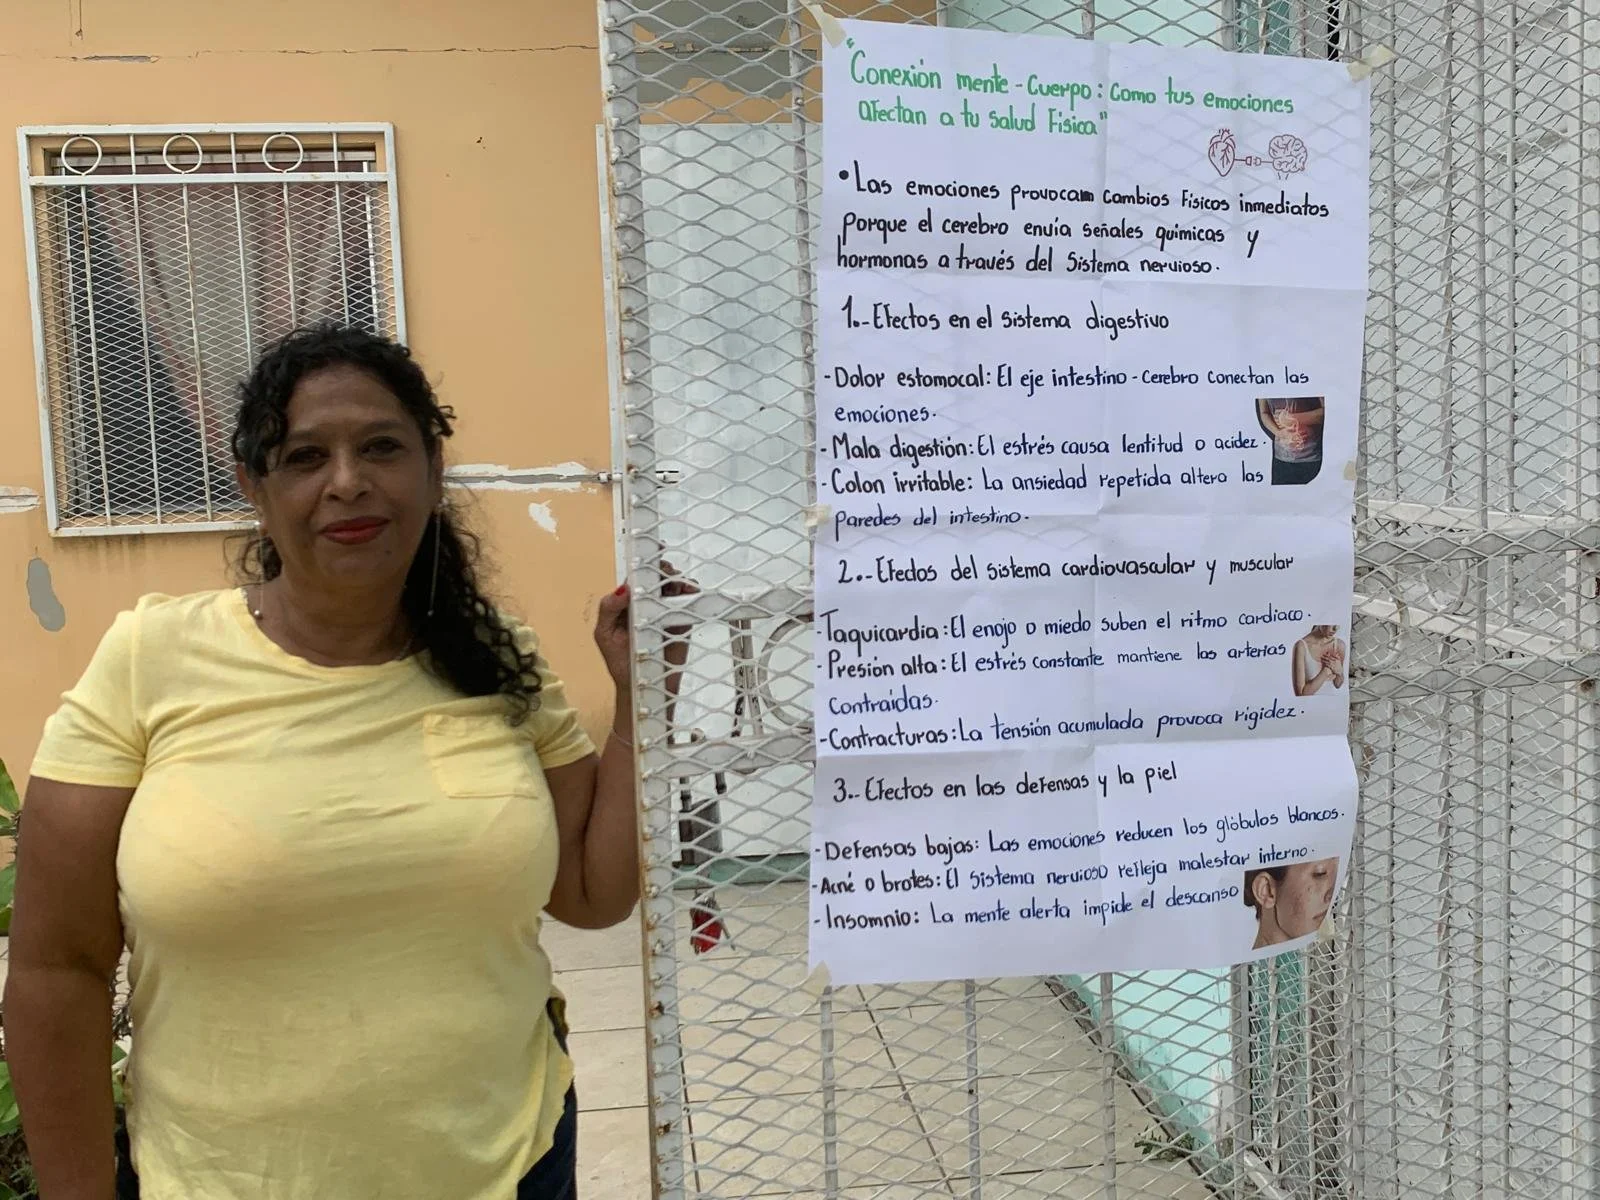 "Conexión mente - Cuerpo: Como tus emociones
afectan a tu salud Física"
• Las emociones provocam cambios Físicos inmediatos
porque el cerebro envía señales químicas y
hormonas a través del Sistema nervioso.
1.- Efectos en el sistema digestivo
- Dolor estomocal: El eje intestino - cerebro conectan las
emociones.
- Mala digestión: El estrés causa lentitud o acidez.
- Colon irritable: La ansiedad repetida altera las
paredes del intestino.
2.- Efectos del sistema cardiovascular y muscular
- Taquicardia: El enojo o miedo suben el ritmo cardiaco.
- Presión alta: El estrés constante mantiene las arterias
contraídas.
- Contracturas: La tensión acumulada provoca rigidez.
3.- Efectos en las defensas y la piel
- Defensas bajas: Las emociones reducen los glóbulos blancos.
- Acné o brotes: El Sistema nervioso refleja malestar interno.
- Insomnio: La mente alerta impide el descanso